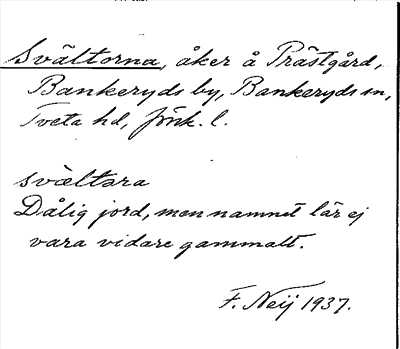 Svältorna, åker å Prästgård,
Bankeryds by, Bankeryds sn,
Tveta hd, Jönk. l.
svæltara
Dålig jord, men namnet lär ej
vara vidare gammalt.
F. Neij 1937.